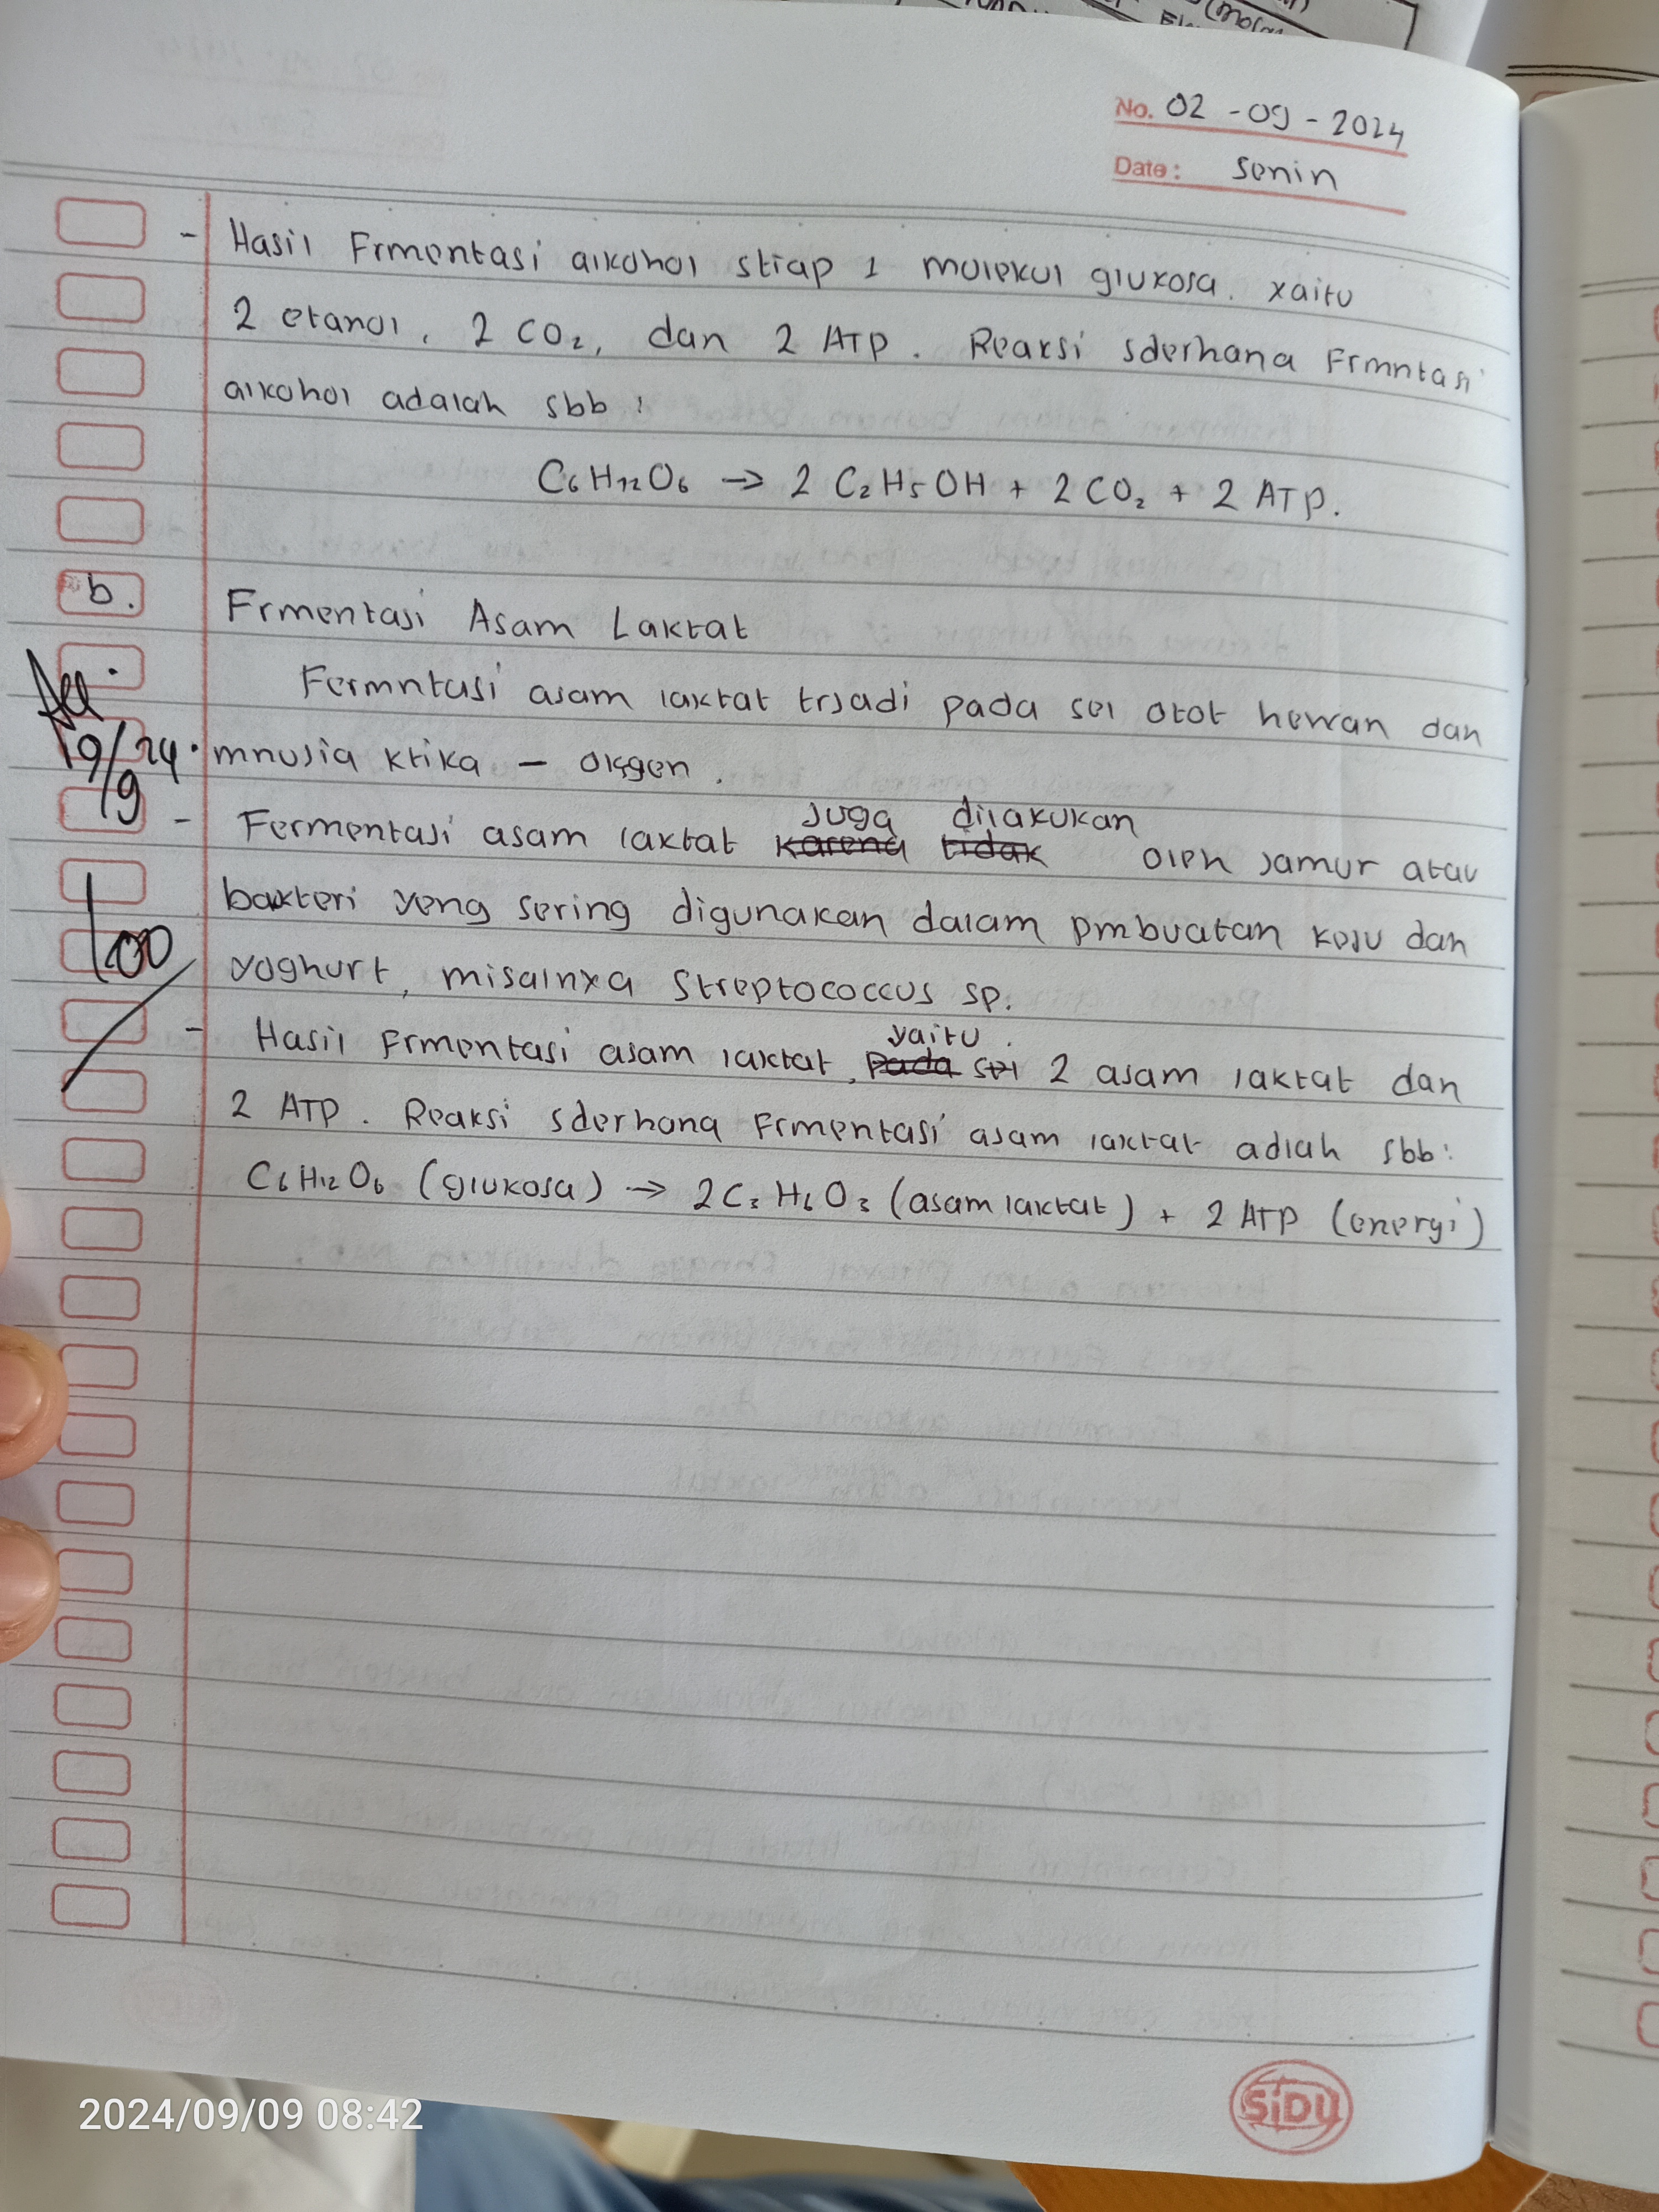 No. 02 - 09 - 2024
Date: Senin
- Hasil Frmentasi alkohol stiap 1 molekul glukosa. xaitu
2 etanol, 2 CO₂, dan 2 ATP. Reaksi sderhana Frmntasi
alkohol adalah sbb:
C₆H₁₂O₆ → 2 C₂H₅OH + 2 CO₂ + 2 ATP.
b. Frmentasi Asam Laktat
Fermntasi asam laktat trjadi pada sel otot hewan dan
mnusia ktika - oksgen.
juga dilakukan
- Fermentasi asam laktat karena tidak oleh jamur atau
bakteri yeng sering digunakan dalam pmbuatan keju dan
yoghurt, misalnxa Streptococcus sp.
yaitu
- Hasil Frmentasi asam laktat, pada sel 2 asam laktat dan
2 ATP. Reaksi sderhana Frmentasi asam laktat adlah sbb:
C₆H₁₂O₆ (glukosa) → 2C₃H₆O₃ (asam laktat) + 2 ATP (energi)
9/9 24
100
SiDU
2024/09/09 08:42